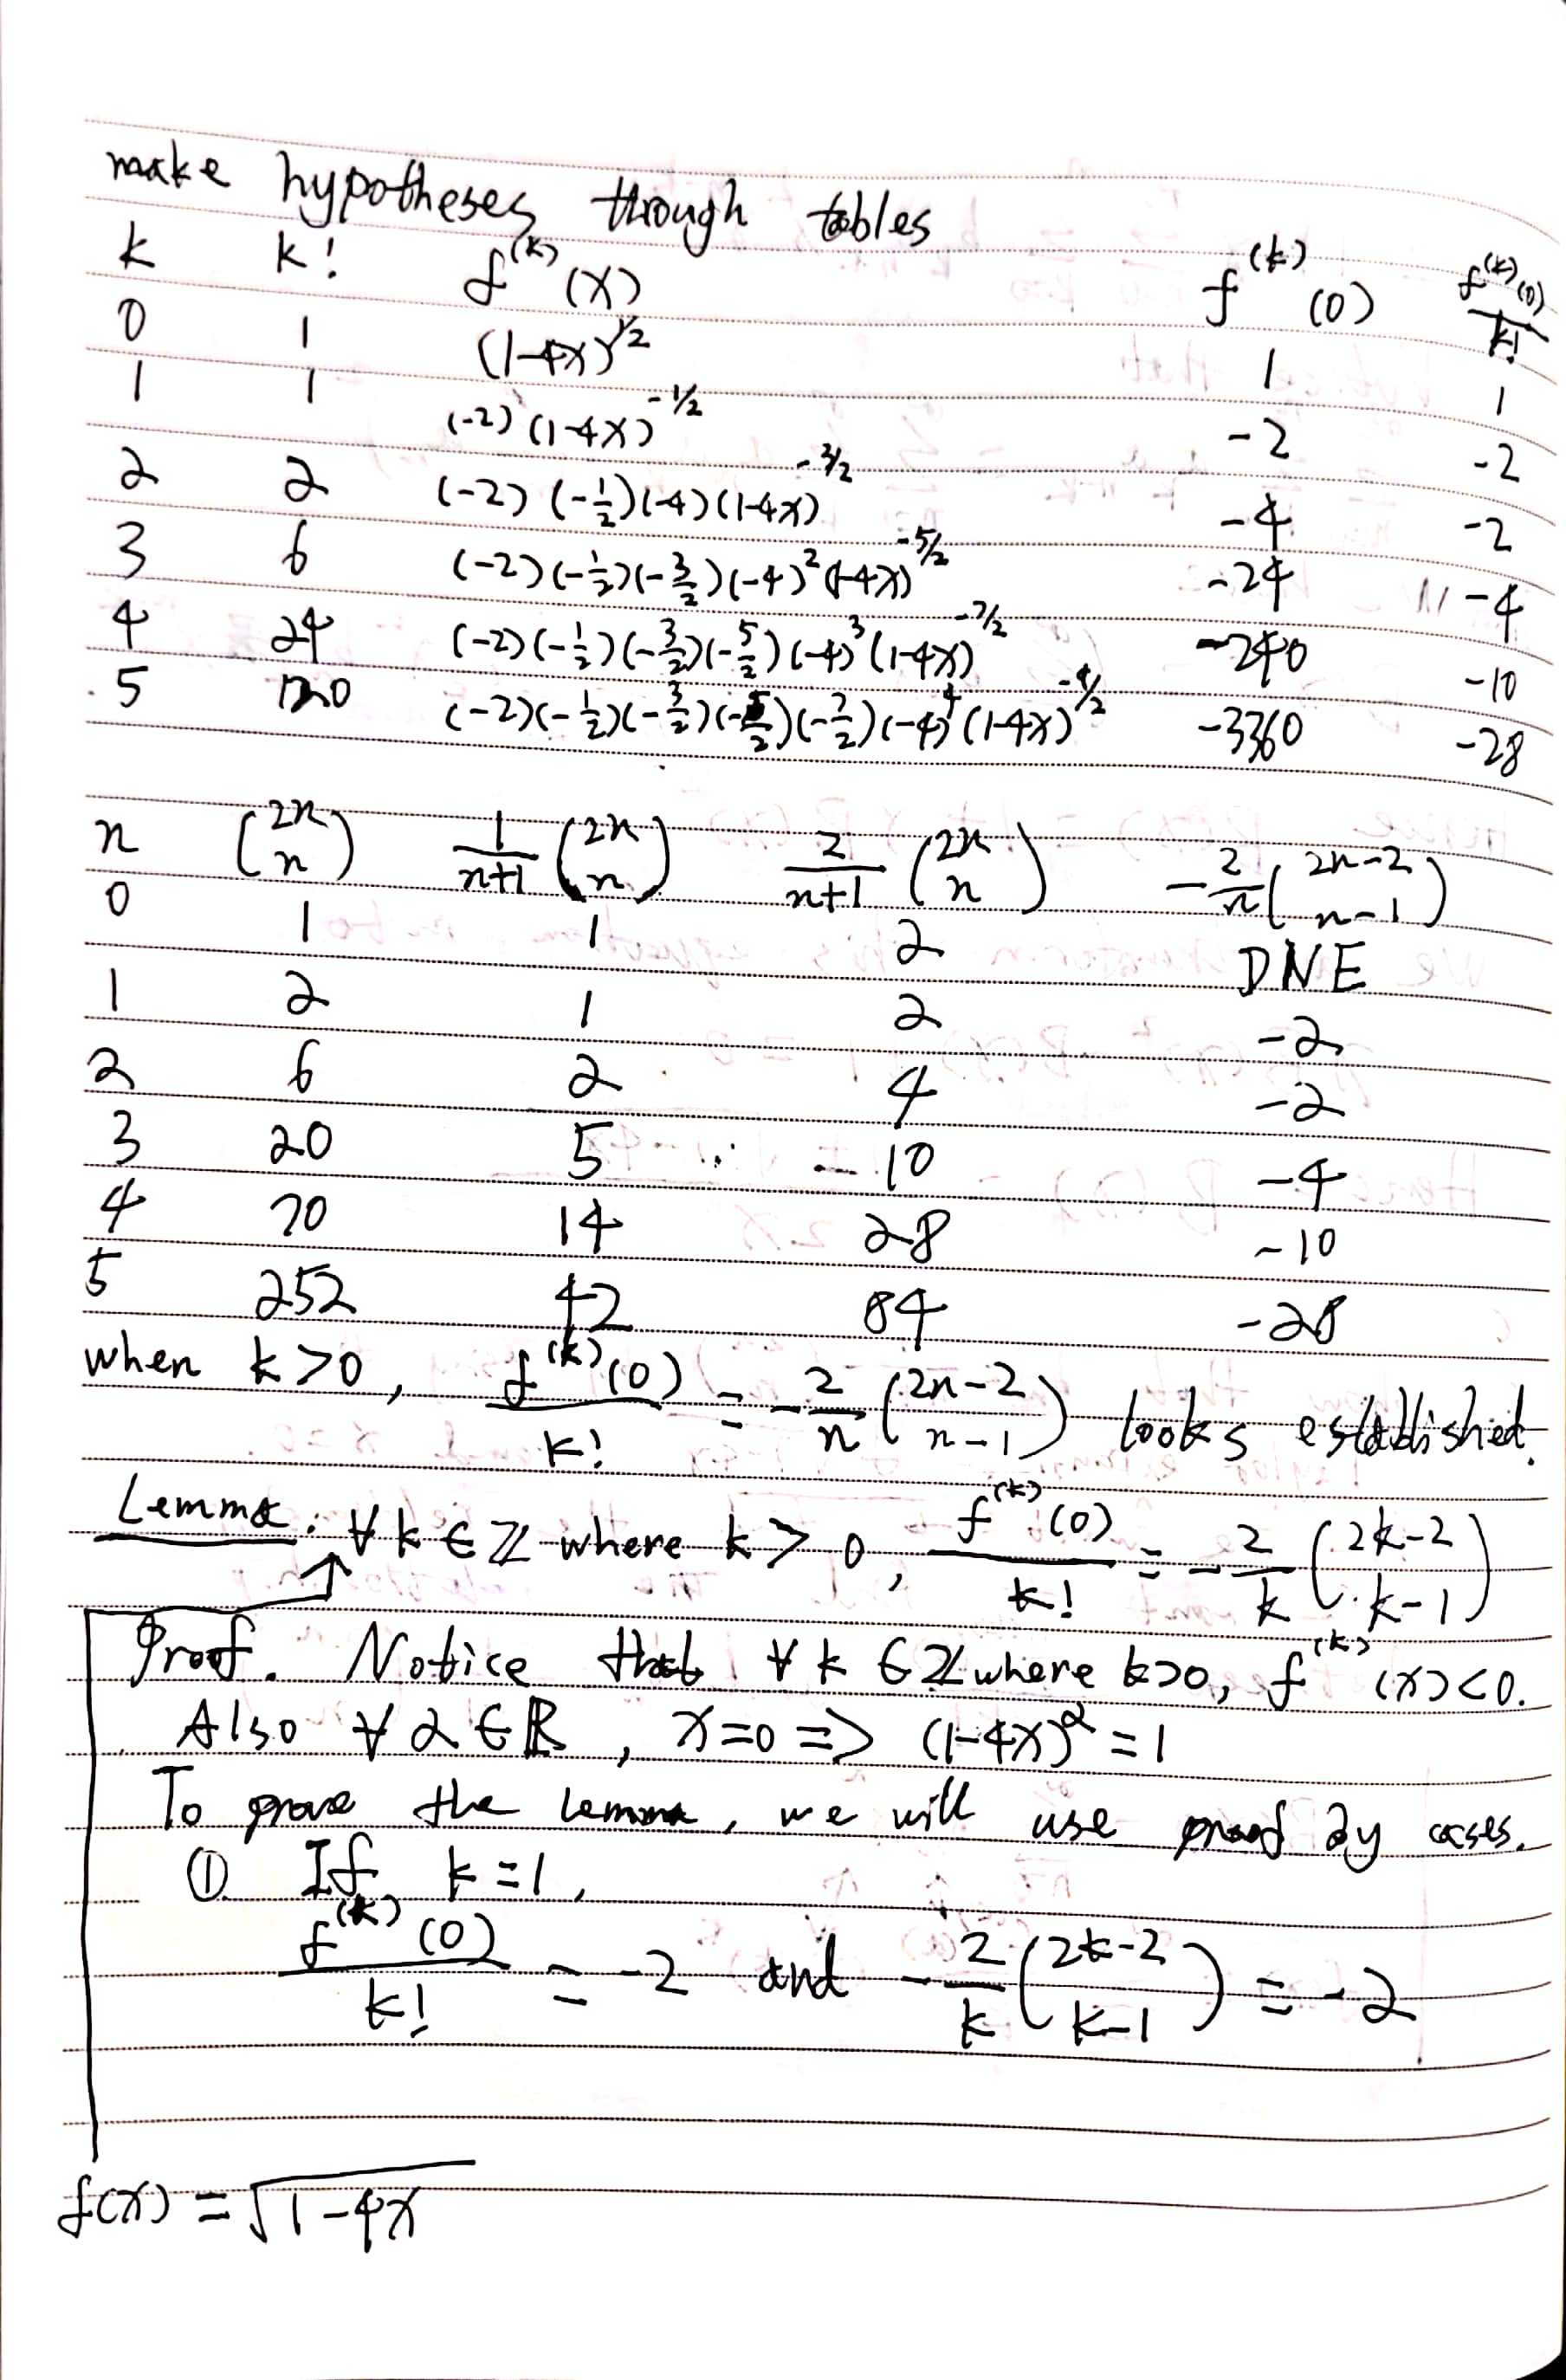 make hypotheses through tables
k k! f^(k)(x) f^(k)(0) f^(k)(0)/k!
0 1 (1-4x)^1/2 1 1
1 1 (-2)(1-4x)^-1/2 -2 -2
2 2 (-2)(-1/2)(-4)(1-4x)^-3/2 -4 -2
3 6 (-2)(-1/2)(-3/2)(-4)^2(1-4x)^-5/2 -24 -4
4 24 (-2)(-1/2)(-3/2)(-5/2)(-4)^3(1-4x)^-7/2 -240 -10
5 120 (-2)(-1/2)(-3/2)(-5/2)(-7/2)(-4)^4(1-4x)^-9/2 -3360 -28
n (2n n) 1/(n+1) (2n n) 2/(n+1) (2n n) -2/n (2n-2 n-1)
0 1 1 2 DNE
1 2 1 2 -2
2 6 2 4 -2
3 20 5 10 -4
4 70 14 28 -10
5 252 42 84 -28
when k>0, f^(k)(0)/k! = -2/n (2n-2 n-1) looks established.
Lemma. ∀k∈ℤ where k>0, f^(k)(0)/k! = -2/k (2k-2 k-1)
Proof. Notice that ∀k∈ℤ where k>0, f^(k)(x)<0.
Also ∀α∈ℝ, x=0 => (1-4x)^α=1
To prove the lemma, we will use proof by cases.
① If k=1,
f^(k)(0)/k! = -2 and -2/k (2k-2 k-1) = -2
f(x) = √1-4x